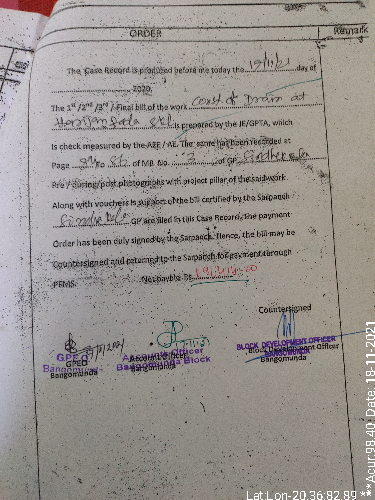 ORDER
Remark
The Case Record is produced before me today the 19/11/21 day of
2020.
The 1st /2nd /3rd / Final bill of the work Const of Drain at
is prepared by the JE/GPTA, which
is check measured by the AEE / AE. The same have been recorded at
Page to of MB No. 3 of GP
Pre / during/post photographs with project pillar of the said work
Along with vouchers is support of the bill certified by the Sarpanch
GP are filed in this Case Record, the payment
Order has been duly signed by the Sarpanch. Hence, the bill may be
Countersigned and returned to the Sarpanch for payment through
PFMS. Net payable Rs.
Countersigned
GPEO Accounts Officer BLOCK DEVELOPMENT OFFICER
GPEO Account Officer Block Development Officer
Bangomunda Bangomunda Block BANGOMUNDA
Bangomunda Bangomunda
Lat:Lon-20.36:82.89 ***Acur:98.40 Date:18-11-2021